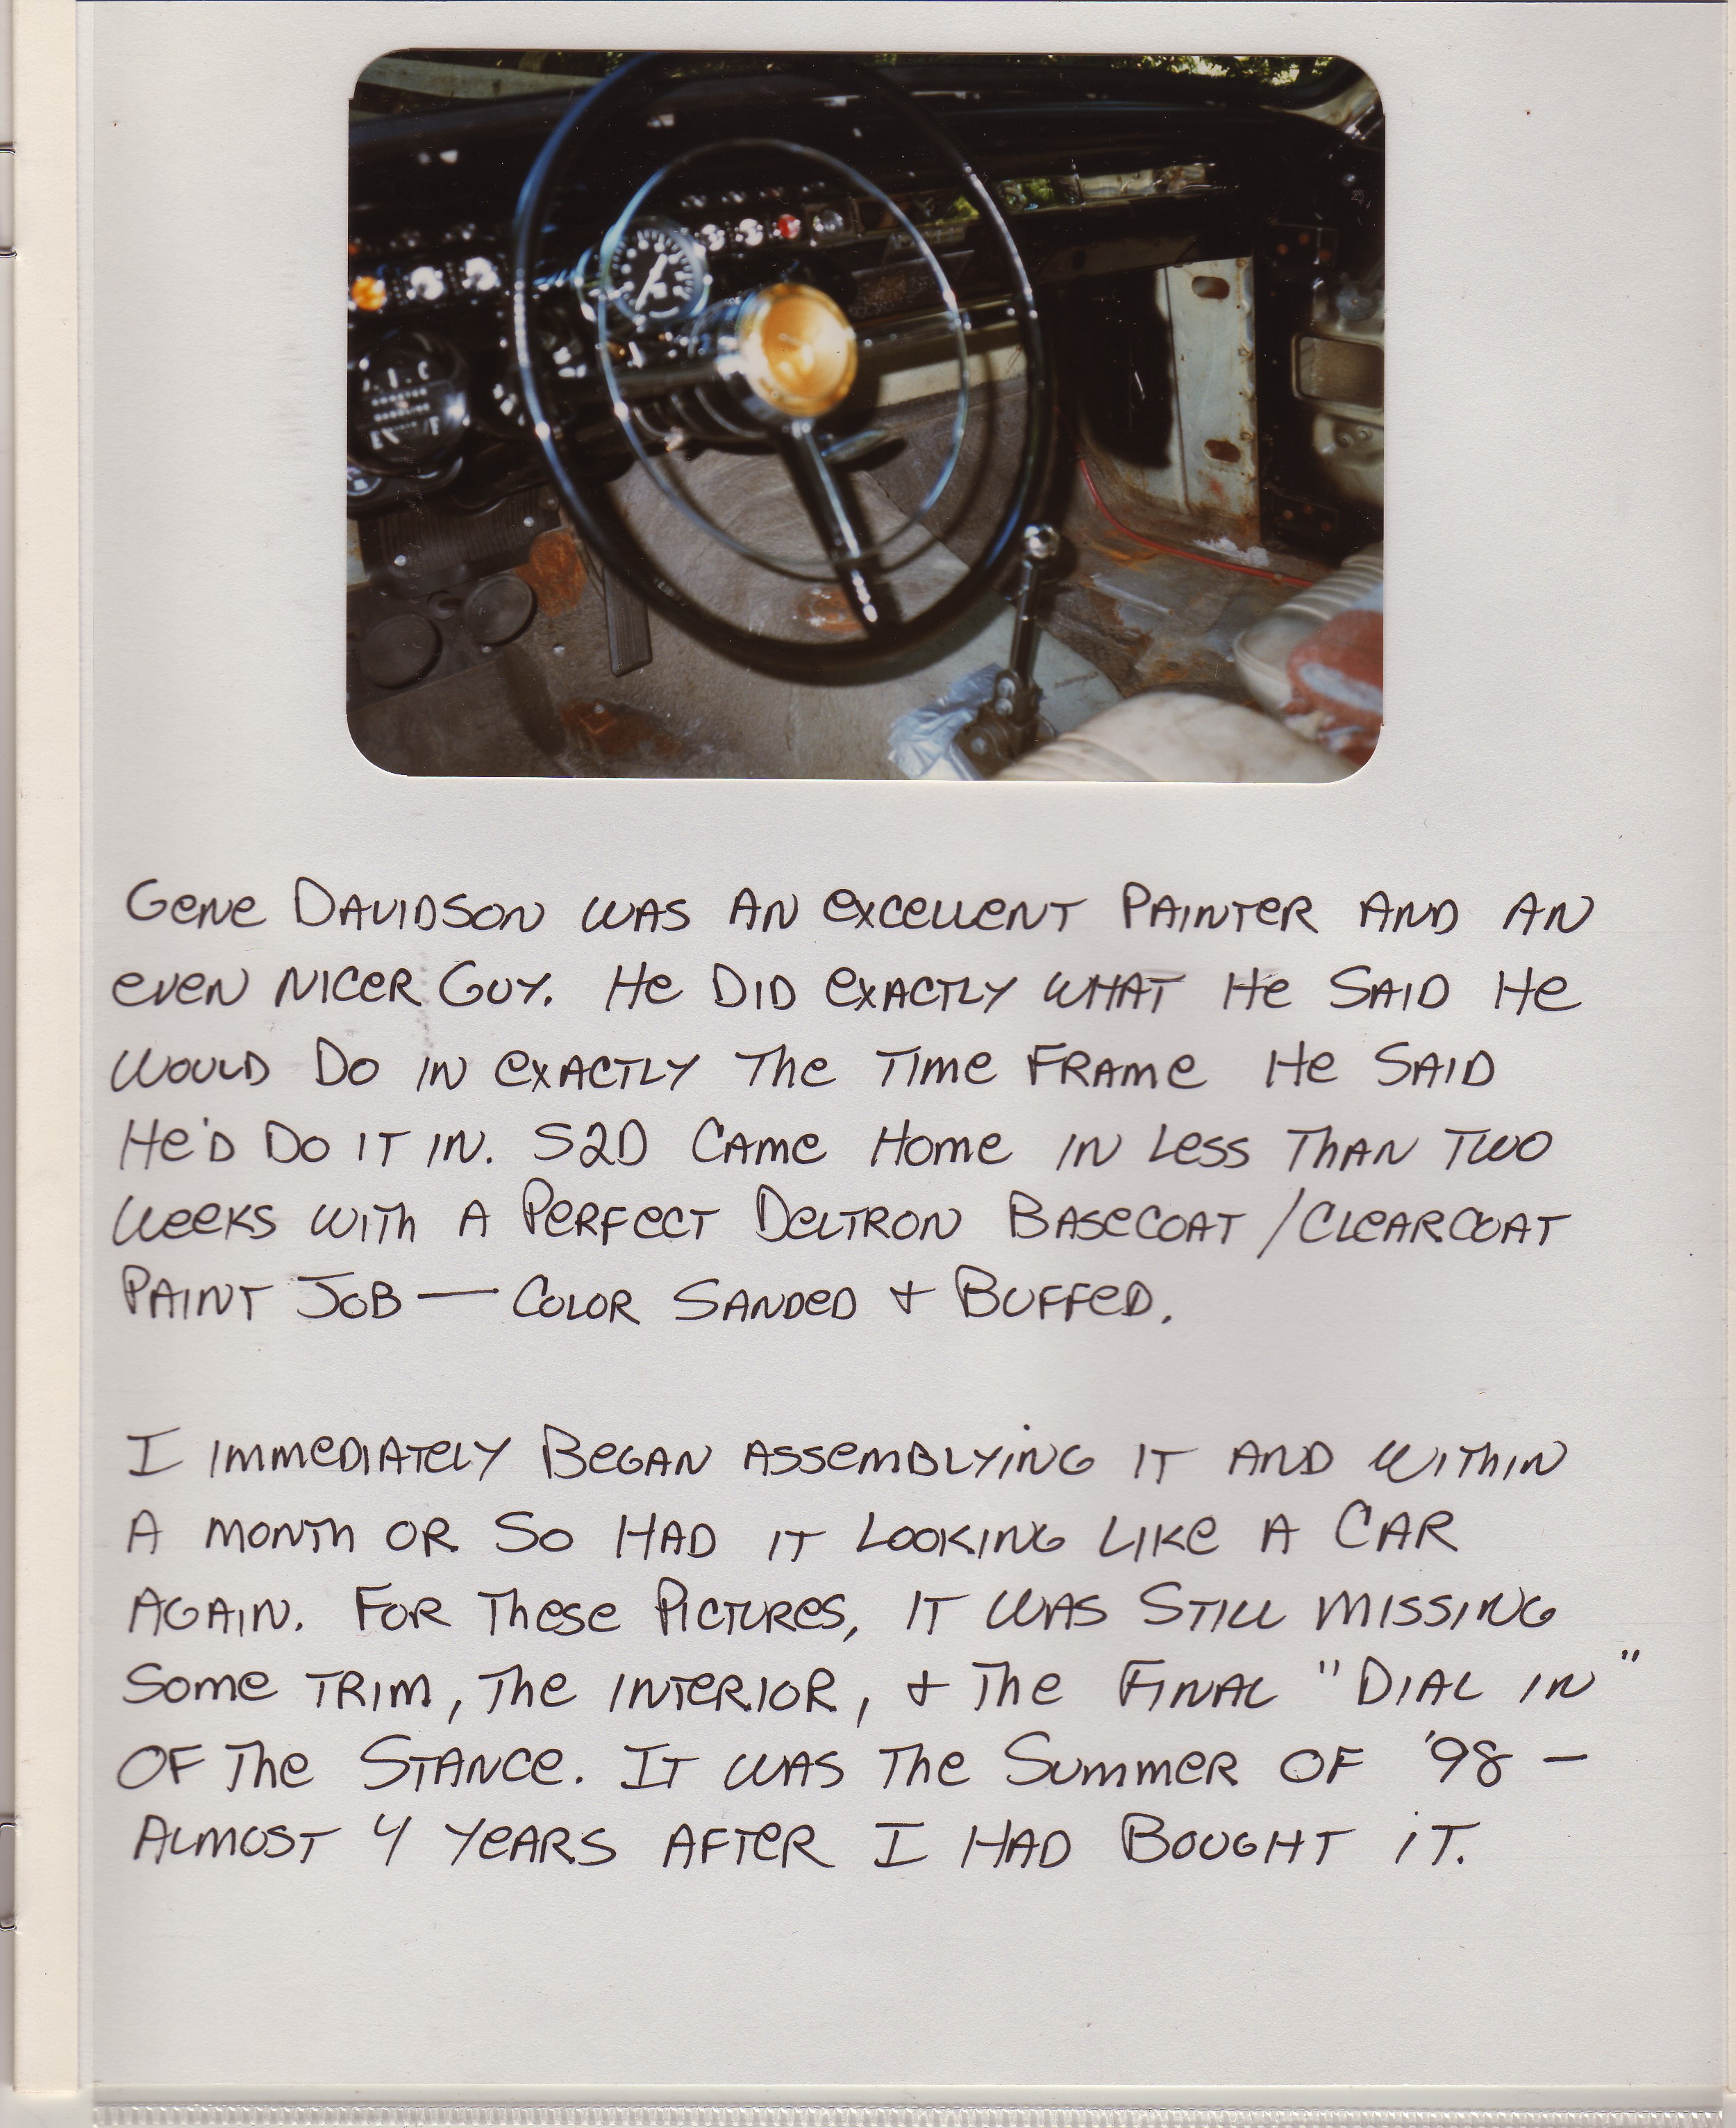 Gene Davidson was an excellent painter and an
even nicer guy. He did exactly what he said he
would do in exactly the time frame he said
he'd do it in. S2D came home in less than two
weeks with a perfect Deltron basecoat/clearcoat
paint job — color sanded + buffed.
I immediately began assemblying it and within
a month or so had it looking like a car
again. For these pictures, it was still missing
some trim, the interior, + the final "dial in"
of the stance. It was the summer of '98 –
almost 4 years after I had bought it.